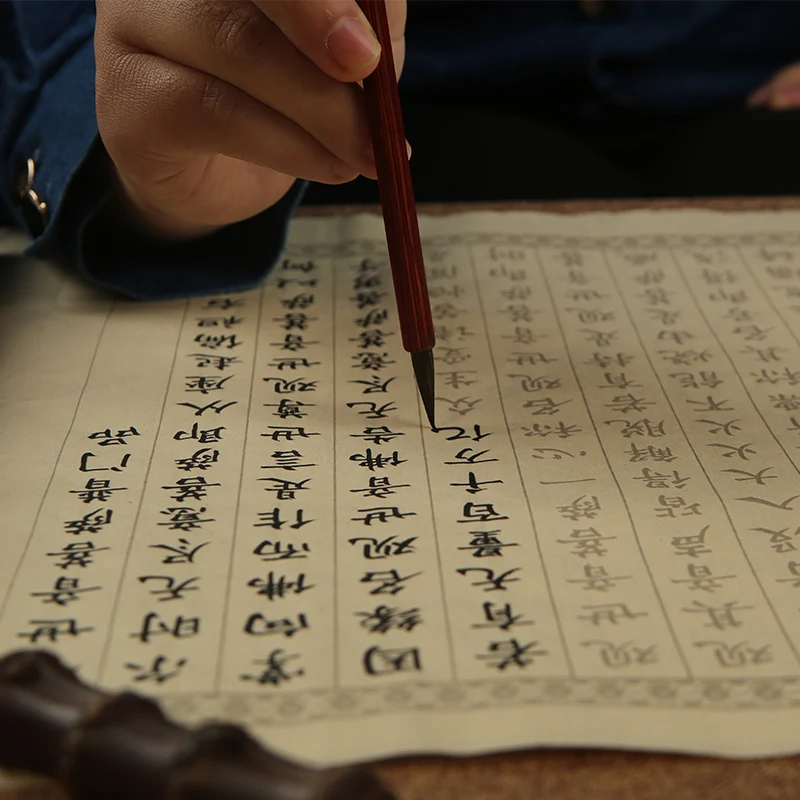 世音菩萨普门品
尔时无尽意菩萨即从座起偏袒右
掌向佛而作是言世尊观世音菩萨以何
因缘名观世音佛告无尽意菩萨善男子
若有无量百千万亿众生受诸苦恼
观世音菩萨一心称名观世音菩萨即时
观其音声皆得解脱若有持是观世音菩
者设入大火火不能烧由是菩萨威
漂称其名号即得浅